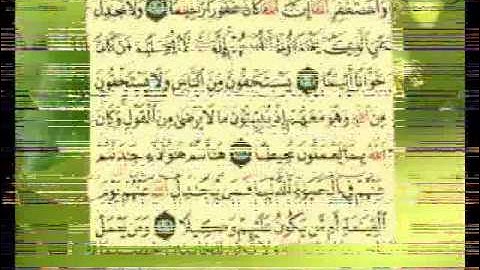 وَٱسْتَغْفِرِ ٱللَّهَ إِنَّ ٱللَّهَ كَانَ غَفُورًا رَّحِيمًا وَلَا تُجَٰدِلْ
عَنِ ٱلَّذِينَ يَخْتَانُونَ أَنفُسَهُمْ إِنَّ ٱللَّهَ لَا يُحِبُّ مَن كَانَ
خَوَّانًا أَثِيمًا يَسْتَخْفُونَ مِنَ ٱلنَّاسِ وَلَا يَسْتَخْفُونَ
مِنَ ٱللَّهِ وَهُوَ مَعَهُمْ إِذْ يُبَيِّتُونَ مَا لَا يَرْضَىٰ مِنَ ٱلْقَوْلِ وَكَانَ
ٱللَّهُ بِمَا يَعْمَلُونَ مُحِيطًا هَٰٓأَنتُمْ هَٰٓؤُلَآءِ جَٰدَلْتُمْ
عَنْهُمْ فِى ٱلْحَيَوٰةِ ٱلدُّنْيَا فَمَن يُجَٰدِلُ ٱللَّهَ عَنْهُمْ يَوْمَ
ٱلْقِيَٰمَةِ أَم مَّن يَكُونُ عَلَيْهِمْ وَكِيلًا وَمَن يَعْمَلْ